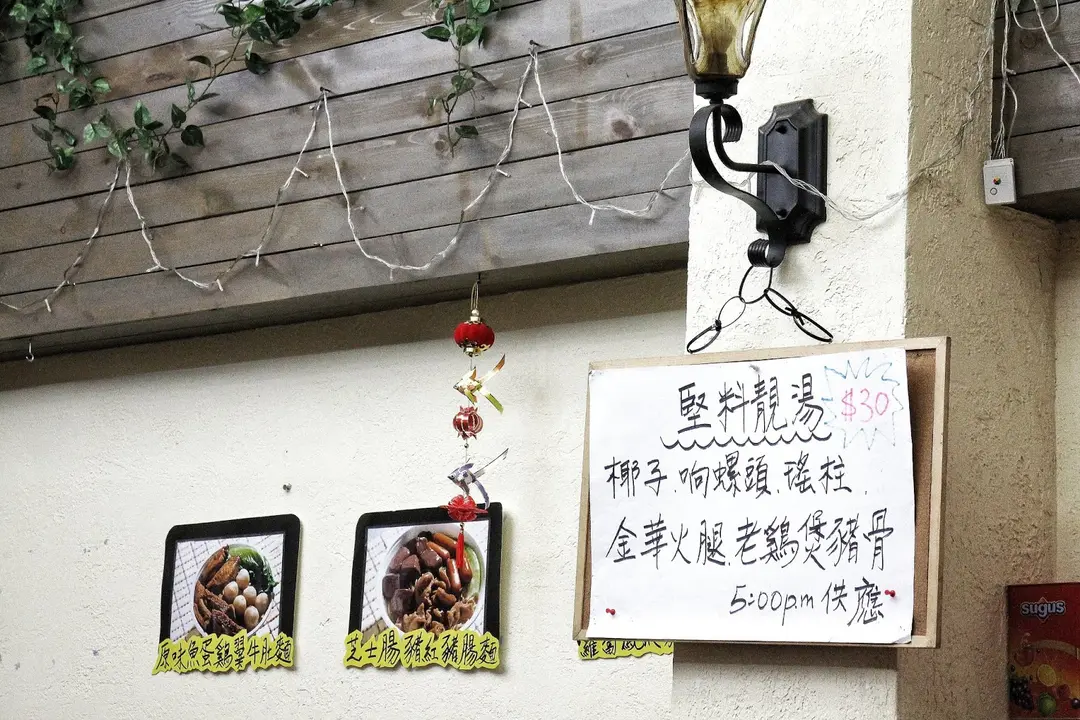 堅料靚湯
$30
椰子.响螺頭.瑤柱.
金華火腿.老鷄煲豬骨
5:00pm 供應
原味魚蛋鷄翼牛肚麵
芝士腸豬紅豬腸麵
sugus